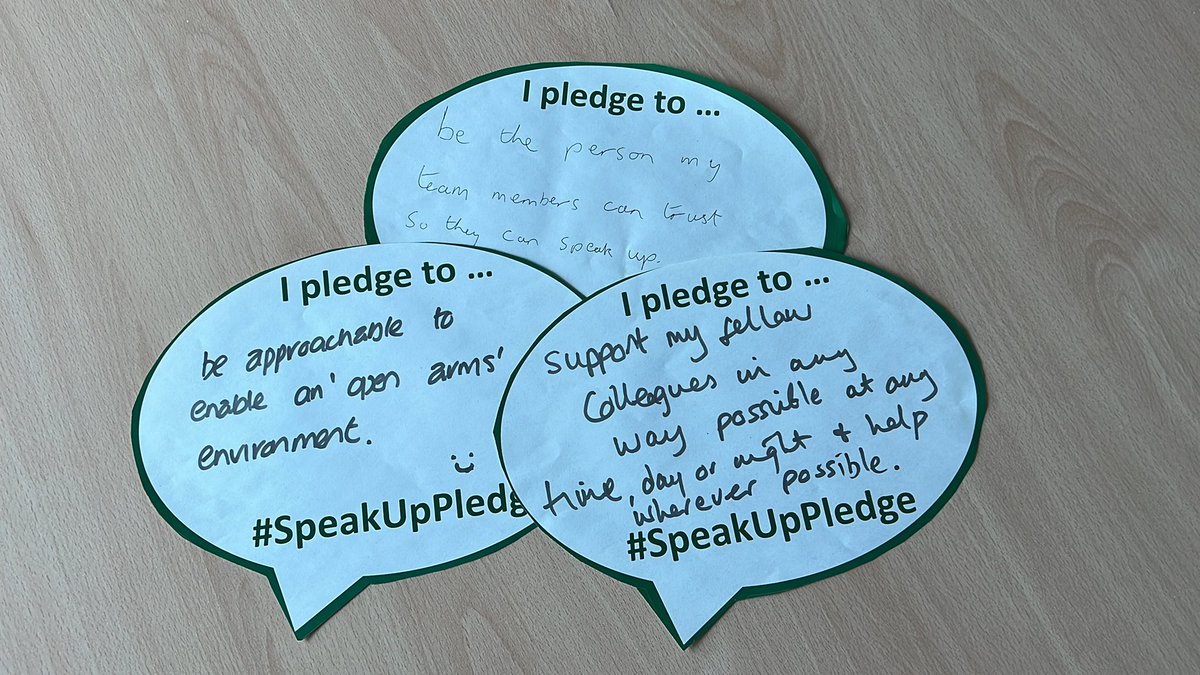 I pledge to ...
be the person my
team members can trust
So they can speak up.
I pledge to ...
be approachable to
enable an 'open arms'
environment.
#SpeakUpPledg
I pledge to ...
support my fellow
Colleagues in any
way possible at any
time, day or night + help
wherever possible.
#SpeakUpPledge